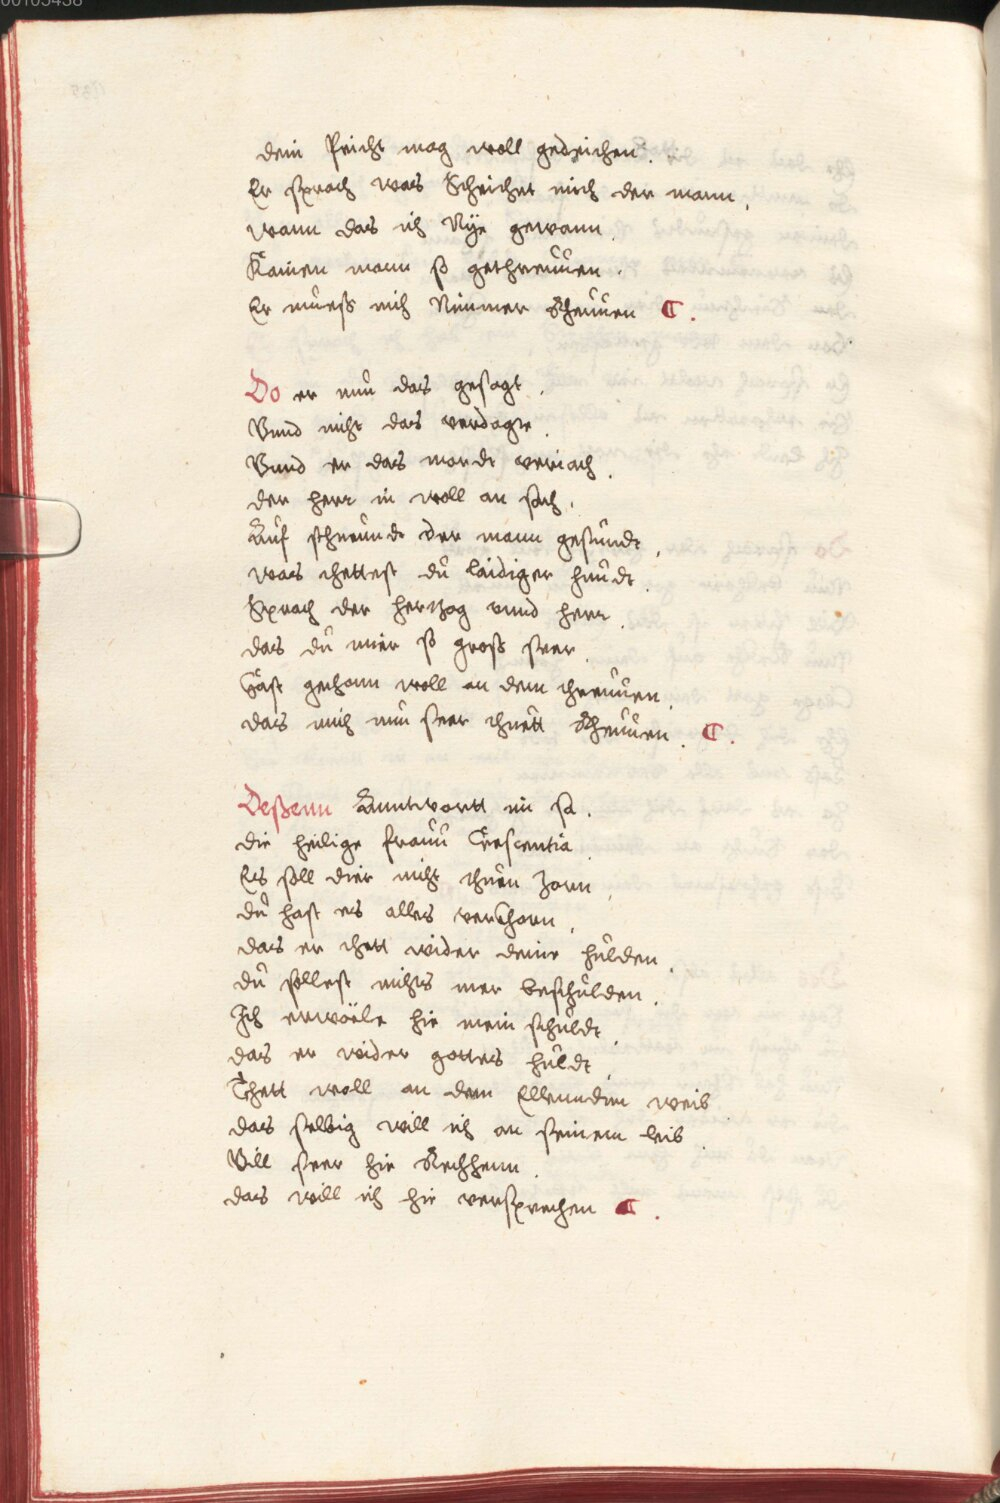 00105458
dein peicht mag woll gedeichen.
Er sprach was Scheichet mich der mann,
wann das ich Nÿe gewann.
Kainen mann so gethreuwen.
Er mueß mich Nimmer Rheuwen C.
Do er nun das gesagt.
Vnnd nicht das verdagte.
Vnnd er das mordt veriach.
der herr in woll an sach.
Auf schreundt der mann gesundt,
was thettest du laidiger hundt.
Sprach der hertzog vnnd herr.
das du mier so groß seer.
Hast gethonn woll an dem threuwen.
das mich nun seer thuett Rheuwen. C.
Deßenn Anntwortt im sa.
die heilige frauw Crescentia.
Es soll dier nicht thuen zorn.
du hast es alles verkhorn,
das er thett wider deine hulden.
du sollest nichts mer beschulden.
Ich erwöele hie mein schuldt.
das er wider gottes huldt.
Thett woll an dem Ellenndem weib
das selbig will ich an seinem leib.
Vill seer hie Rechhenn.
das will ich hie versprechen C.